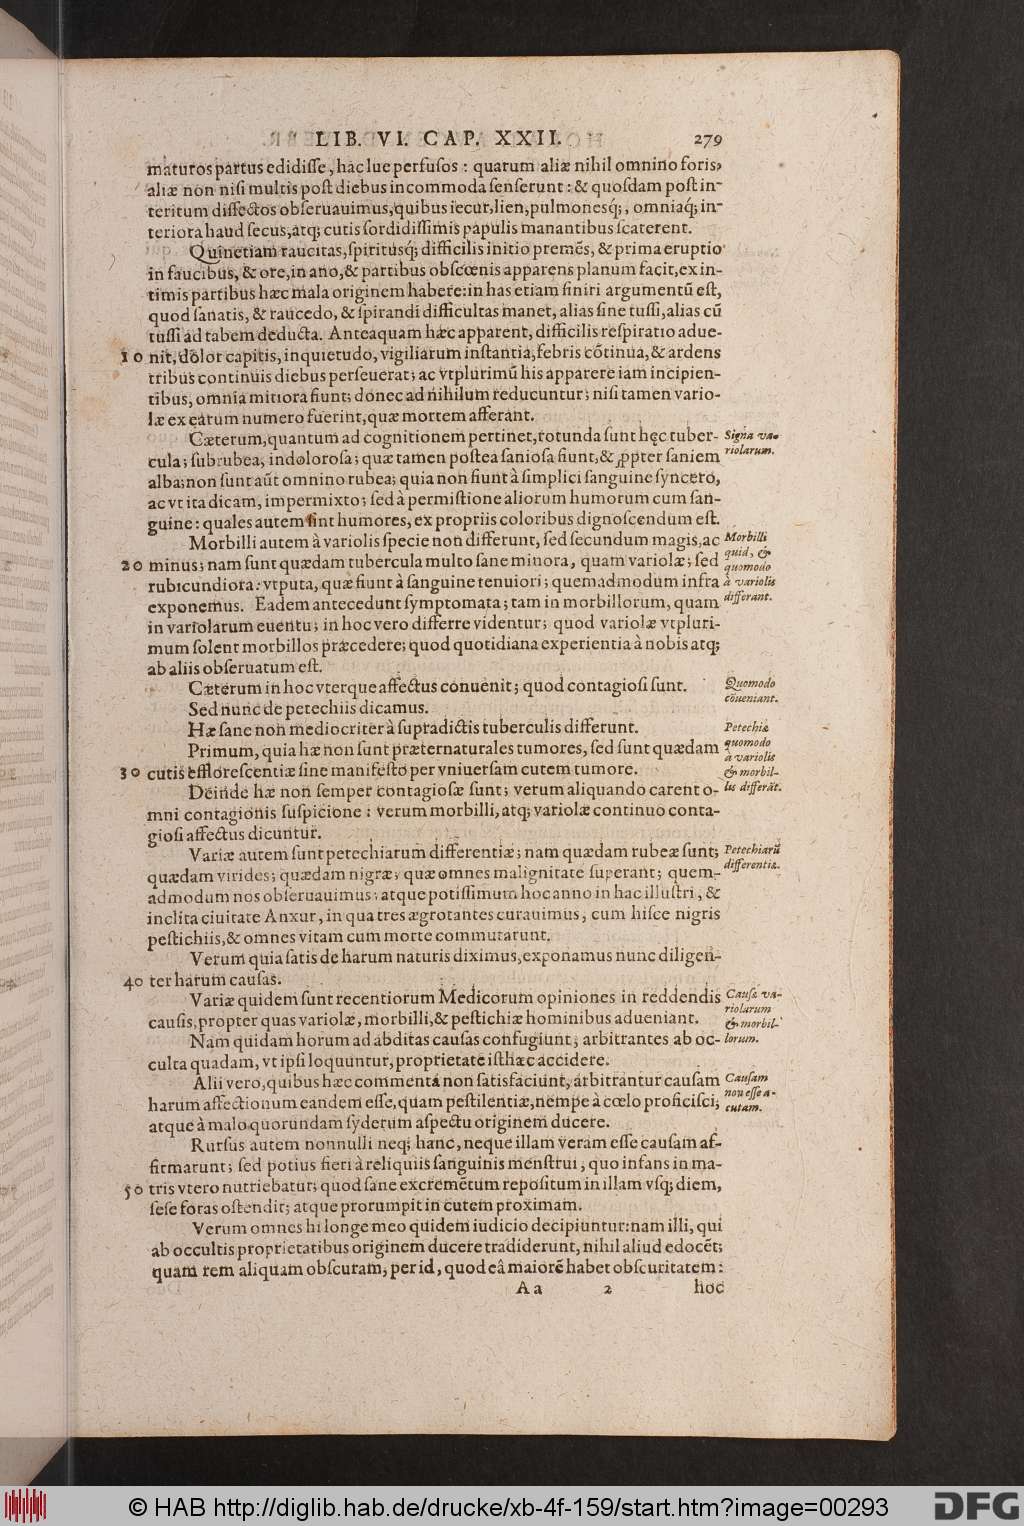 LIB. VI. CAP. XXII. 279
maturos partus edidisse, hac lue perfusos: quarum aliæ nihil omnino foris,
aliæ non nisi multis post diebus incommoda senserunt: & quosdam post in-
teritum dissectos obseruauimus, quibus iecur, lien, pulmonesq́;, omniaq́; in-
teriora haud secus, atq; cutis sordidissimis papulis manantibus scaterent.
Quinetiam raucitas, spiritusq́; difficilis initio premẽs, & prima eruptio
in faucibus, & ore, in ano, & partibus obscœnis apparens planum facit, ex in-
timis partibus hæc mala originem habere: in has etiam finiri argumentũ est,
quod sanatis, & raucedo, & spirandi difficultas manet, alias sine tussi, alias cũ
tussi ad tabem deducta. Anteaquam hæc apparent, difficilis respiratio adue-
10 nit, dolor capitis, inquietudo, vigiliarum instantia, febris cõtinua, & ardens
tribus continuis diebus perseuerat; ac vtplurimũ his apparere iam incipien-
tibus, omnia mitiora fiunt; donec ad nihilum reducuntur; nisi tamen vario-
læ ex earum numero fuerint, quæ mortem afferant.
Cæterum, quantum ad cognitionem pertinet, rotunda sunt hęc tuber-
cula; subrubea, indolorosa; quæ tamen postea saniosa fiunt, & ꝓpter saniem
alba; non sunt aũt omnino rubea; quia non fiunt à simplici sanguine syncero,
ac vt ita dicam, impermixto; sed à permistione aliorum humorum cum san-
guine: quales autem sint humores, ex propriis coloribus dignoscendum est.
Signa va-
riolarum.
Morbilli autem à variolis specie non differunt, sed secundum magis, ac
20 minus; nam sunt quædam tubercula multo sane minora, quam variolæ; sed
rubicundiora: vtputa, quæ fiunt à sanguine tenuiori; quemadmodum infra
exponemus. Eadem antecedunt symptomata; tam in morbillorum, quam
in variolarum euentu; in hoc vero differre videntur; quod variolæ vtpluri-
mum solent morbillos præcedere; quod quotidiana experientia à nobis atq;
ab aliis obseruatum est.
Morbilli
quid, &
quomodo
à variolis
differant.
Cæterum in hoc vterque affectus conuenit; quod contagiosi sunt.
Quomodo
cõueniant.
Sed nunc de petechiis dicamus.
Hæ sane non mediocriter à supradictis tuberculis differunt.
Primum, quia hæ non sunt præternaturales tumores, sed sunt quædam
30 cutis efflorescentiæ sine manifesto per vniuersam cutem tumore.
Deinde hæ non semper contagiosæ sunt; verum aliquando carent o-
mni contagionis suspicione: verum morbilli, atq; variolæ continuo conta-
giosi affectus dicuntur.
Petechiæ
quomodo
à variolis
& morbil-
lis differãt.
Variæ autem sunt petechiarum differentiæ; nam quædam rubeæ sunt;
quædam virides; quædam nigræ, quæ omnes malignitate superant; quem-
admodum nos obseruauimus: atque potissimum hoc anno in hac illustri, &
inclita ciuitate Anxur, in qua tres ægrotantes curauimus, cum hisce nigris
pestichiis, & omnes vitam cum morte commutarunt.
Petechiarũ
differentiæ.
Verum quia satis de harum naturis diximus, exponamus nunc diligen-
40 ter harum causas.
Variæ quidem sunt recentiorum Medicorum opiniones in reddendis
causis, propter quas variolæ, morbilli, & pestichiæ hominibus adueniant.
Nam quidam horum ad abditas causas confugiunt; arbitrantes ab oc-
culta quadam, vt ipsi loquuntur, proprietate isthæc accidere.
Causæ va-
riolarum
& morbil-
lorum.
Alii vero, quibus hæc commenta non satisfaciunt, arbitrantur causam
harum affectionum eandem esse, quam pestilentiæ, nempe à cœlo proficisci;
atque à malo quorundam syderum aspectu originem ducere.
Causam
non esse a-
cutam.
Rursus autem nonnulli neq; hanc, neque illam veram esse causam af-
firmarunt; sed potius fieri à reliquiis sanguinis menstrui, quo infans in ma-
50 tris vtero nutriebatur; quod sane excremẽtum repositum in illam vsq; diem,
sese foras ostendit; atque prorumpit in cutem proximam.
Verum omnes hi longe meo quidem iudicio decipiuntur: nam illi, qui
ab occultis proprietatibus originem ducere tradiderunt, nihil aliud edocẽt;
quam rem aliquam obscuram, per id, quod eâ maiorẽ habet obscuritatem:
Aa 2 hoc
© HAB http://diglib.hab.de/drucke/xb-4f-159/start.htm?image=00293
DFG